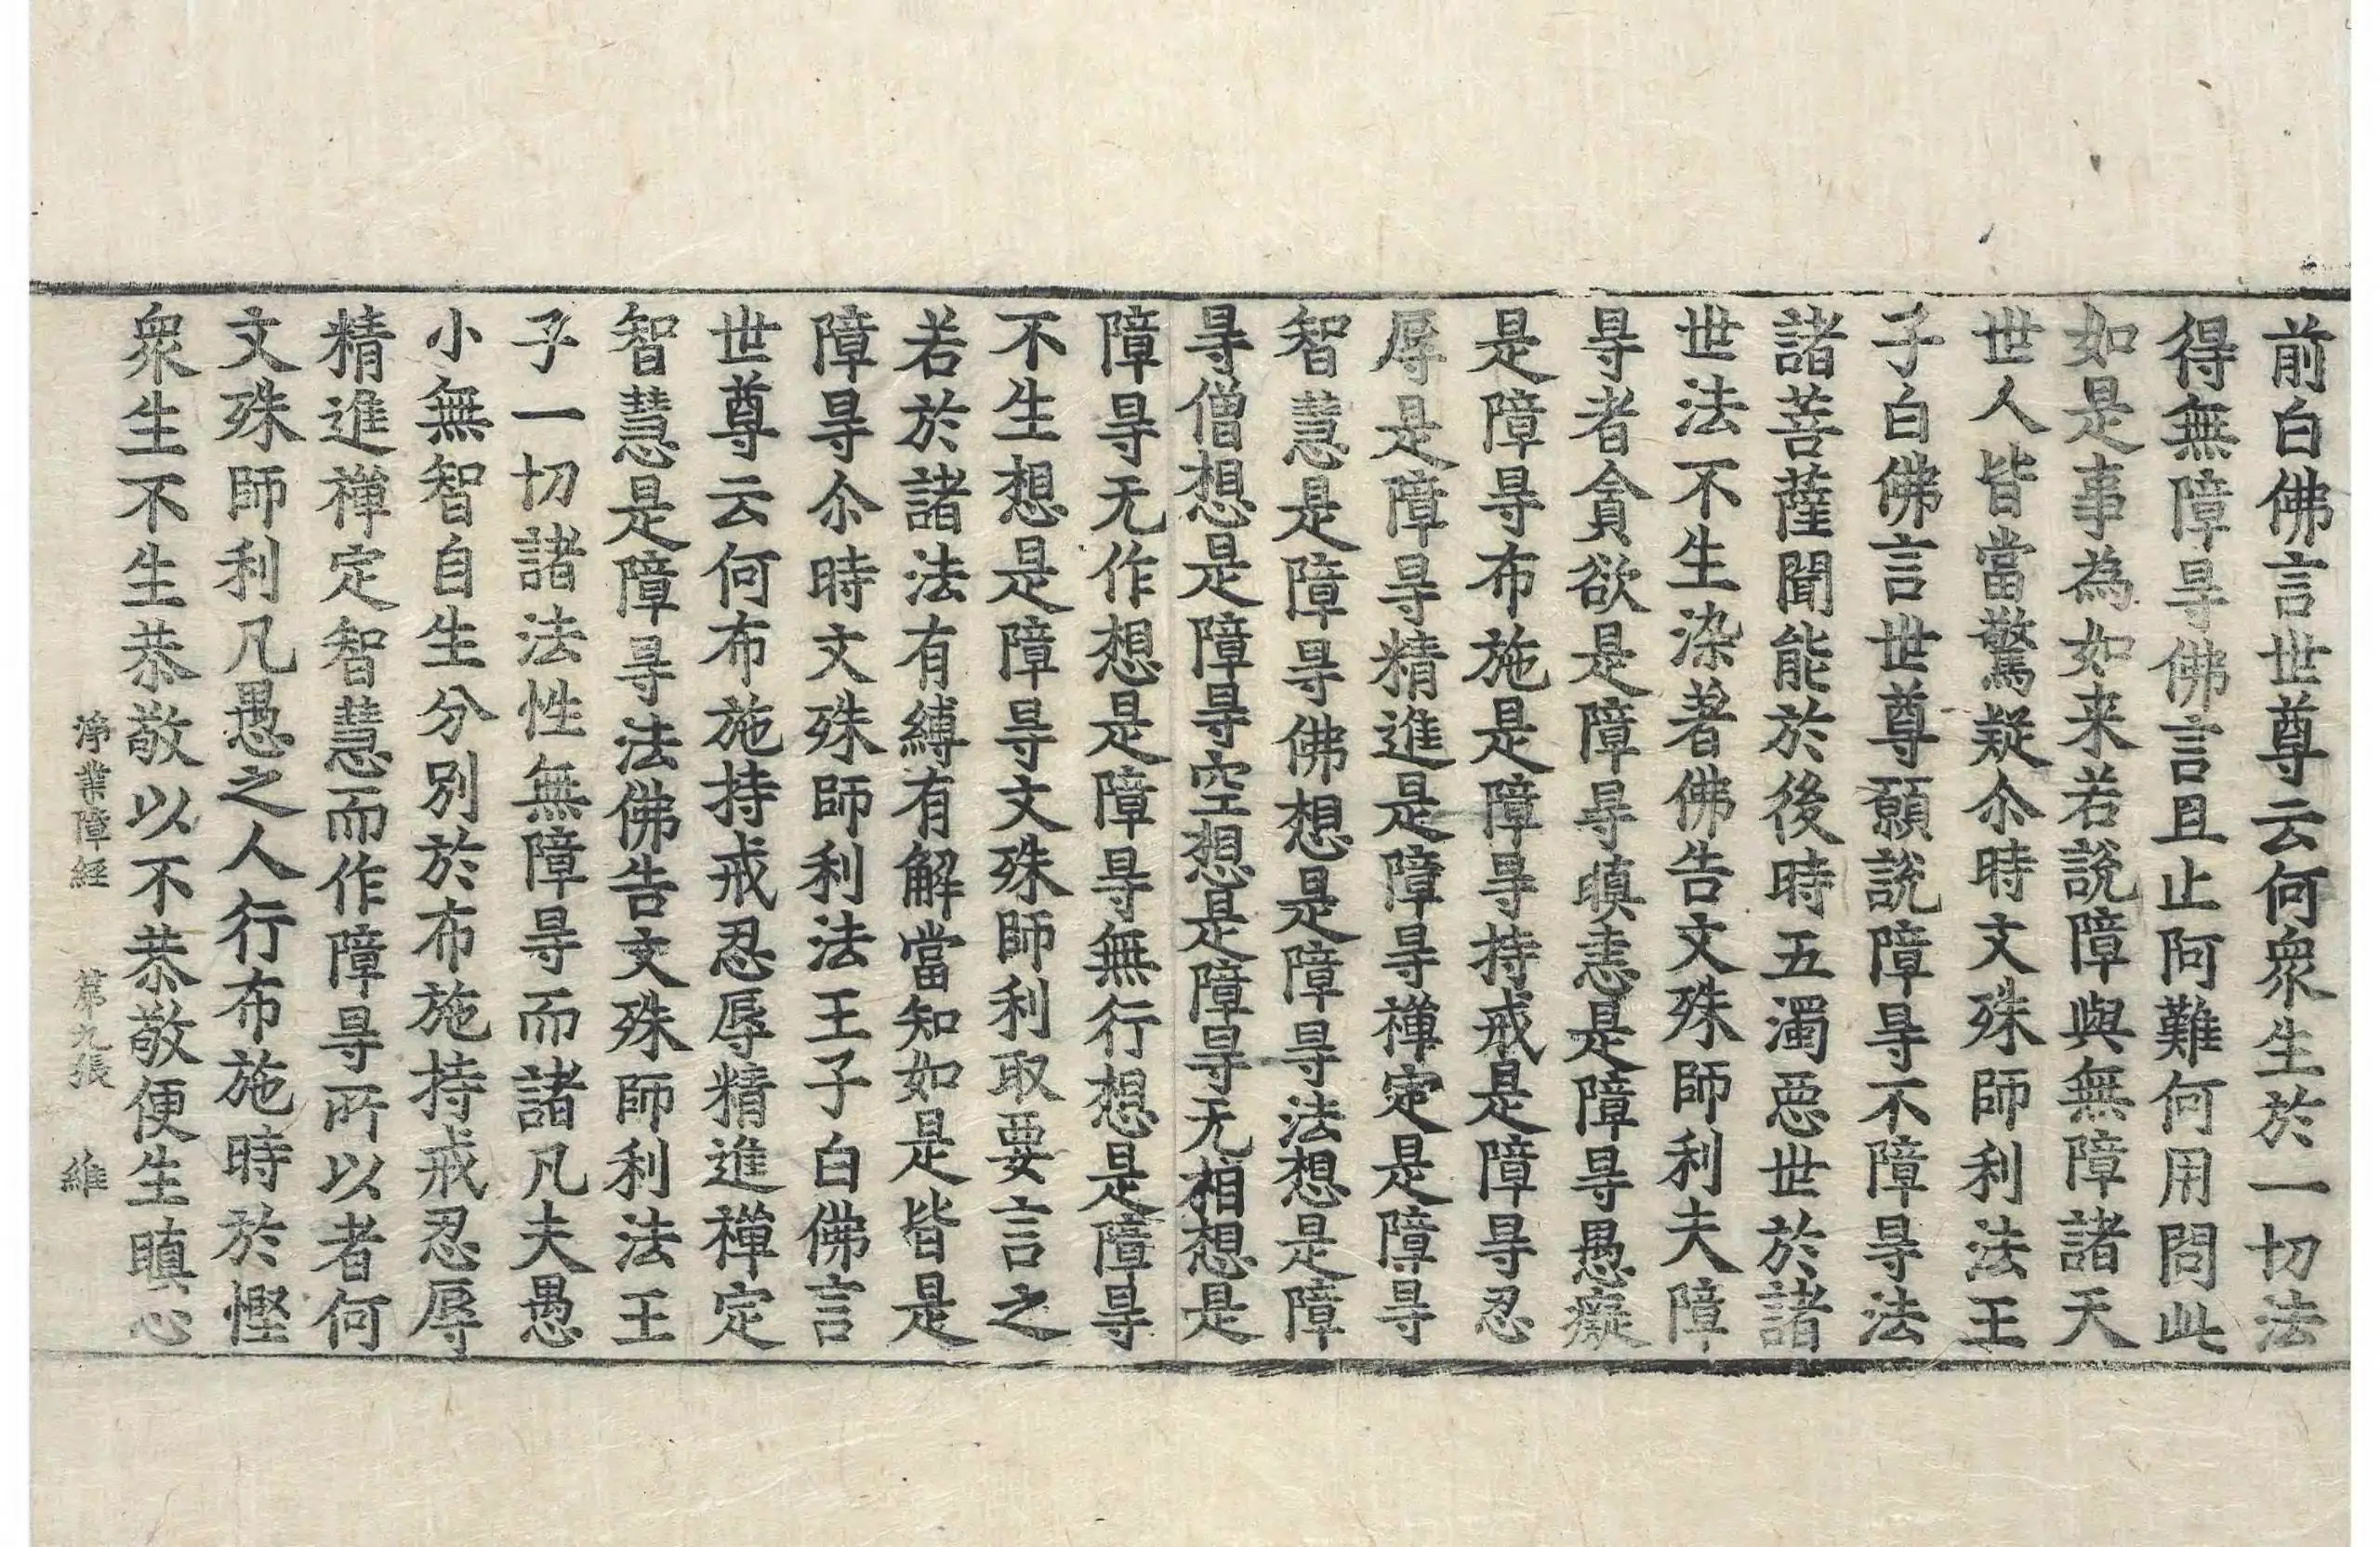 前白佛言世尊云何衆生於一切法
得無障㝵佛言且止阿難何用問此
如是事為如来若說障與無障諸天
世人皆當驚疑尒時文殊師利法王
子白佛言世尊願說障㝵不障㝵法
諸菩薩聞能於後時五濁惡世於諸
世法不生染著佛告文殊師利夫障
㝵者貪欲是障㝵瞋恚是障㝵愚癡
是障㝵布施是障㝵持戒是障㝵忍
辱是障㝵精進是障㝵禪定是障㝵
智慧是障㝵佛想是障㝵法想是障
㝵僧想是障㝵空想是障㝵无相想是
障㝵无作想是障㝵無行想是障㝵
不生想是障㝵文殊師利取要言之
若於諸法有縛有解當知如是皆是
障㝵尒時文殊師利法王子白佛言
世尊云何布施持戒忍辱精進禪定
智慧是障㝵法佛告文殊師利法王
子一切諸法性無障㝵而諸凡夫愚
小無智自生分別於布施持戒忍辱
精進禪定智慧而作障㝵所以者何
文殊師利凡愚之人行布施時於慳
衆生不生恭敬以不恭敬便生瞋心
淨業障經　第九張　維